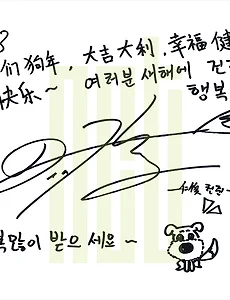 们狗年，大吉大利，幸福健
快乐～ 여러분 새해에 건
행복
복많이 받으세요～